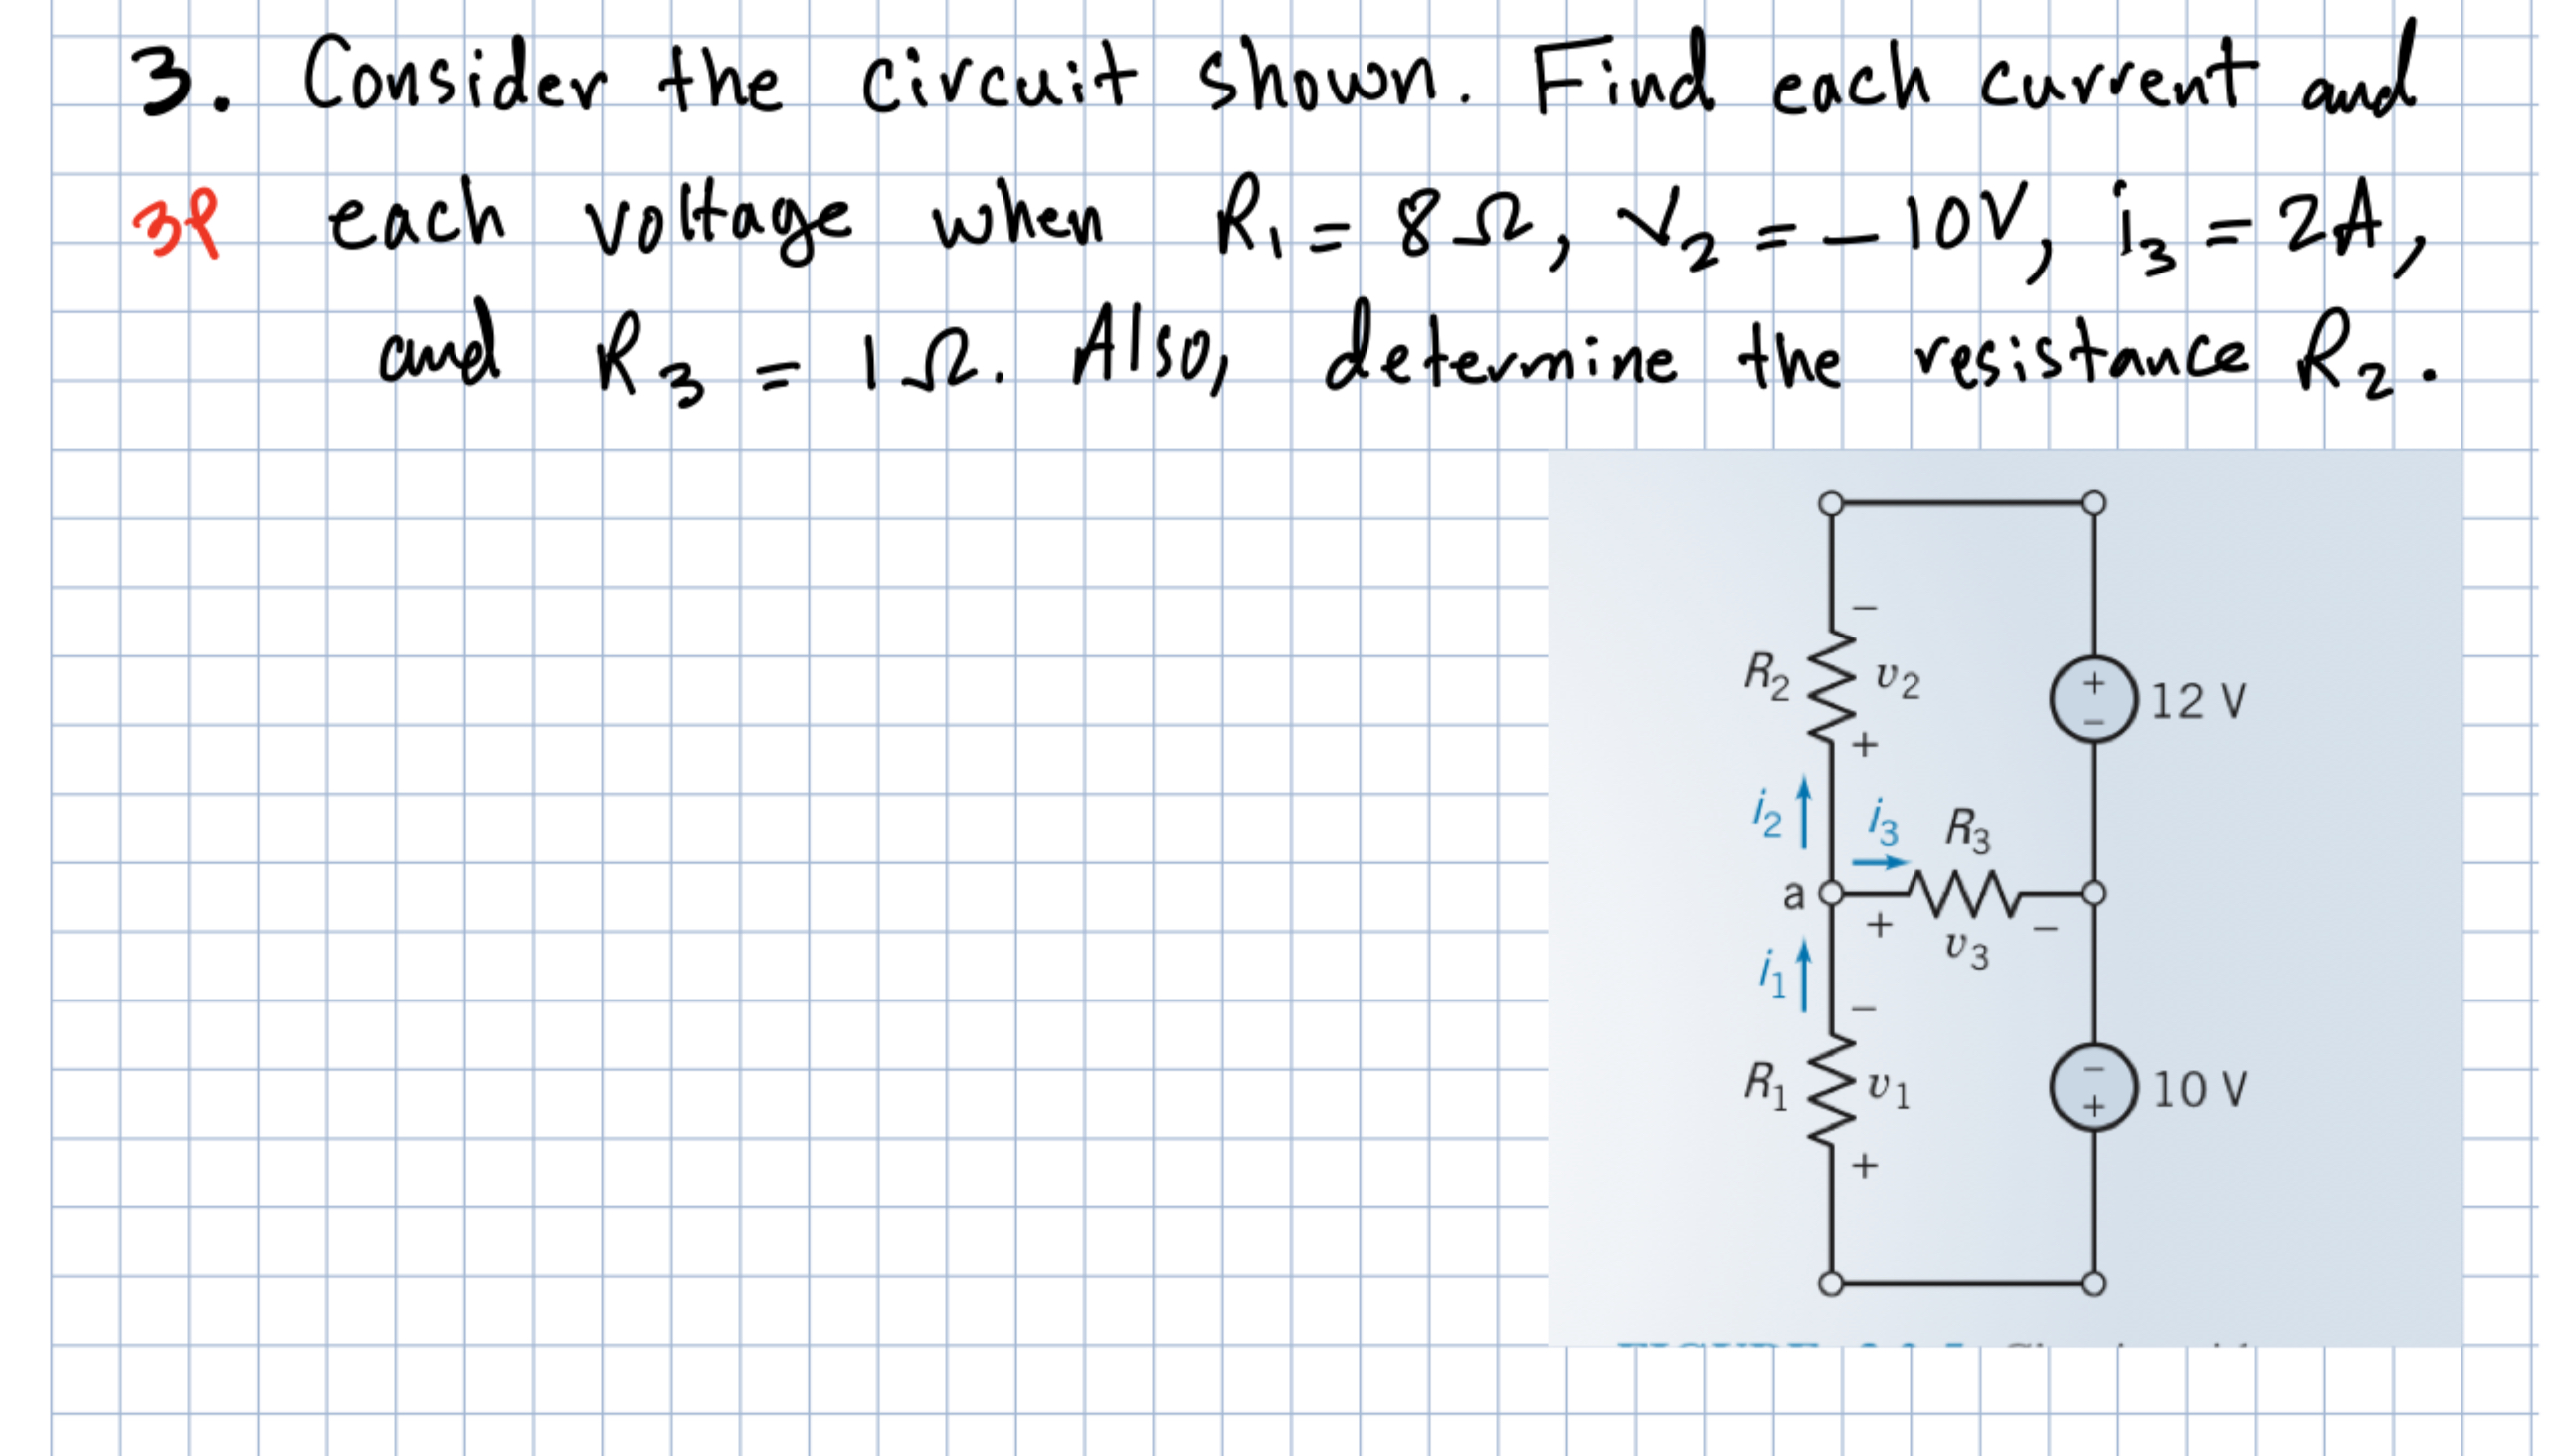 3. Consider the circuit shown. Find each current and
3P each voltage when R₁ = 8Ω, V₂ = −10V, i₃ = 2A,
and R₃ = 1Ω. Also, determine the resistance R₂.
−
R₂ v₂
+
−
12 V
+
i₂
i₃ R₃
a
+ v₃ −
i₁
−
R₁ v₁
−
+
10 V
+